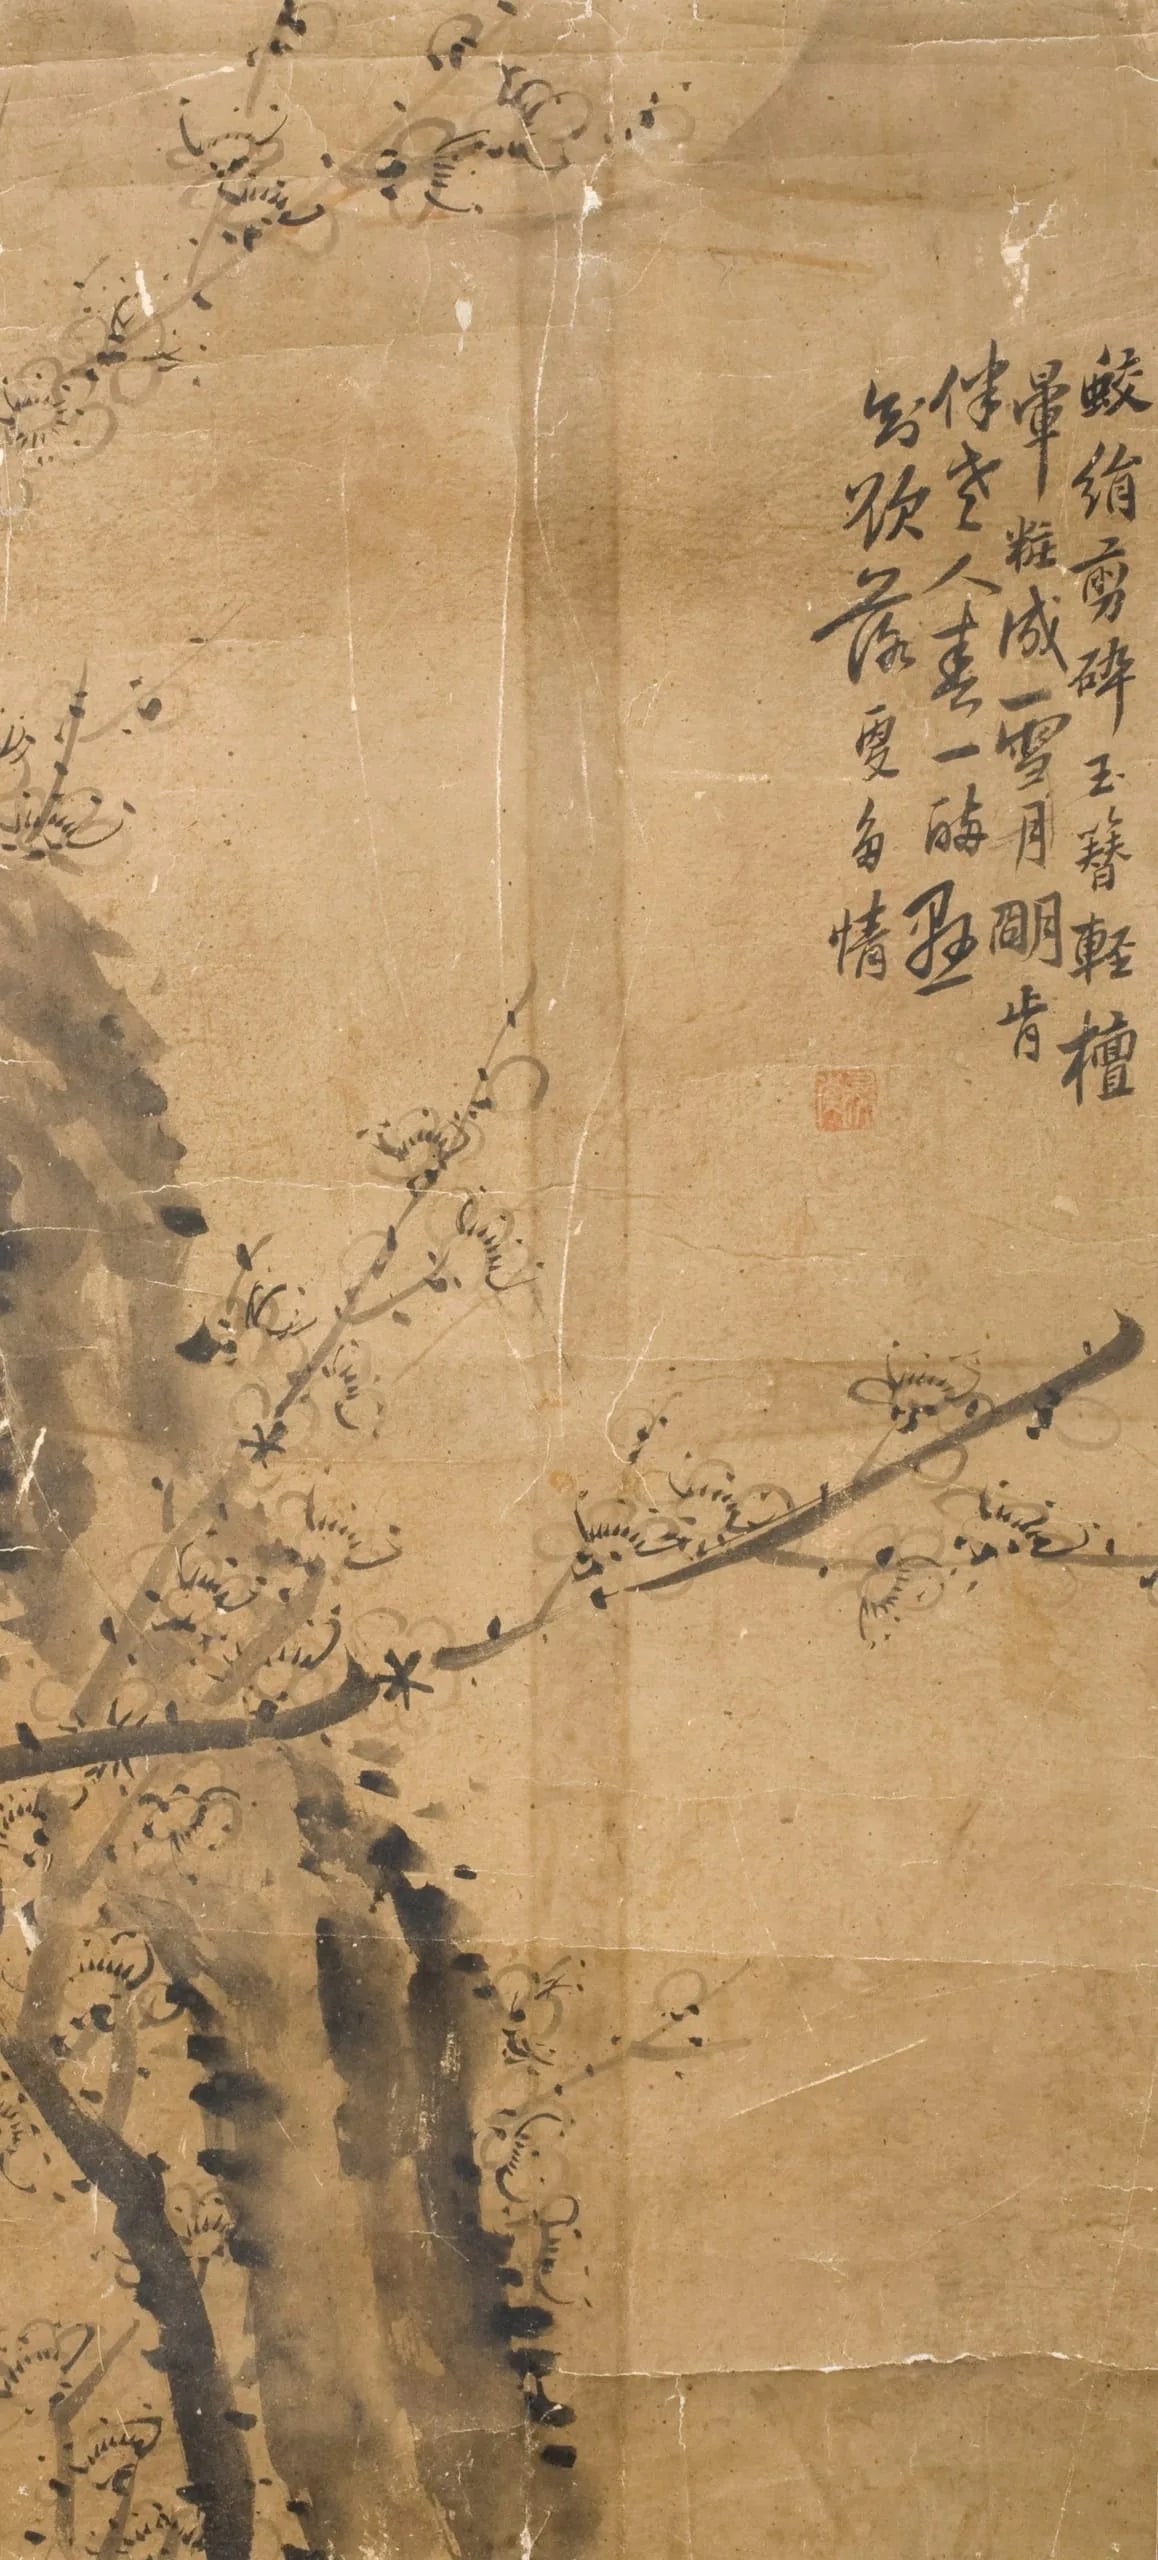 蛟綃剪碎玉簪輕檀
暈粧成雪月明肯
伴老人春一醉懸
知欲落更多情